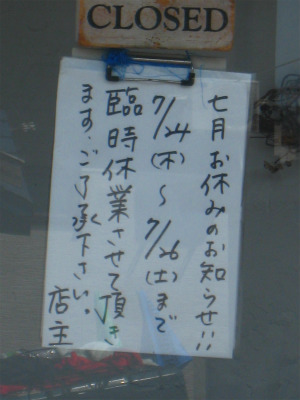 CLOSED
七月お休みのお知らせ!!
7/24(木)〜7/26(土)まで
臨時休業させて頂き
ます。ご了承下さい。
店主